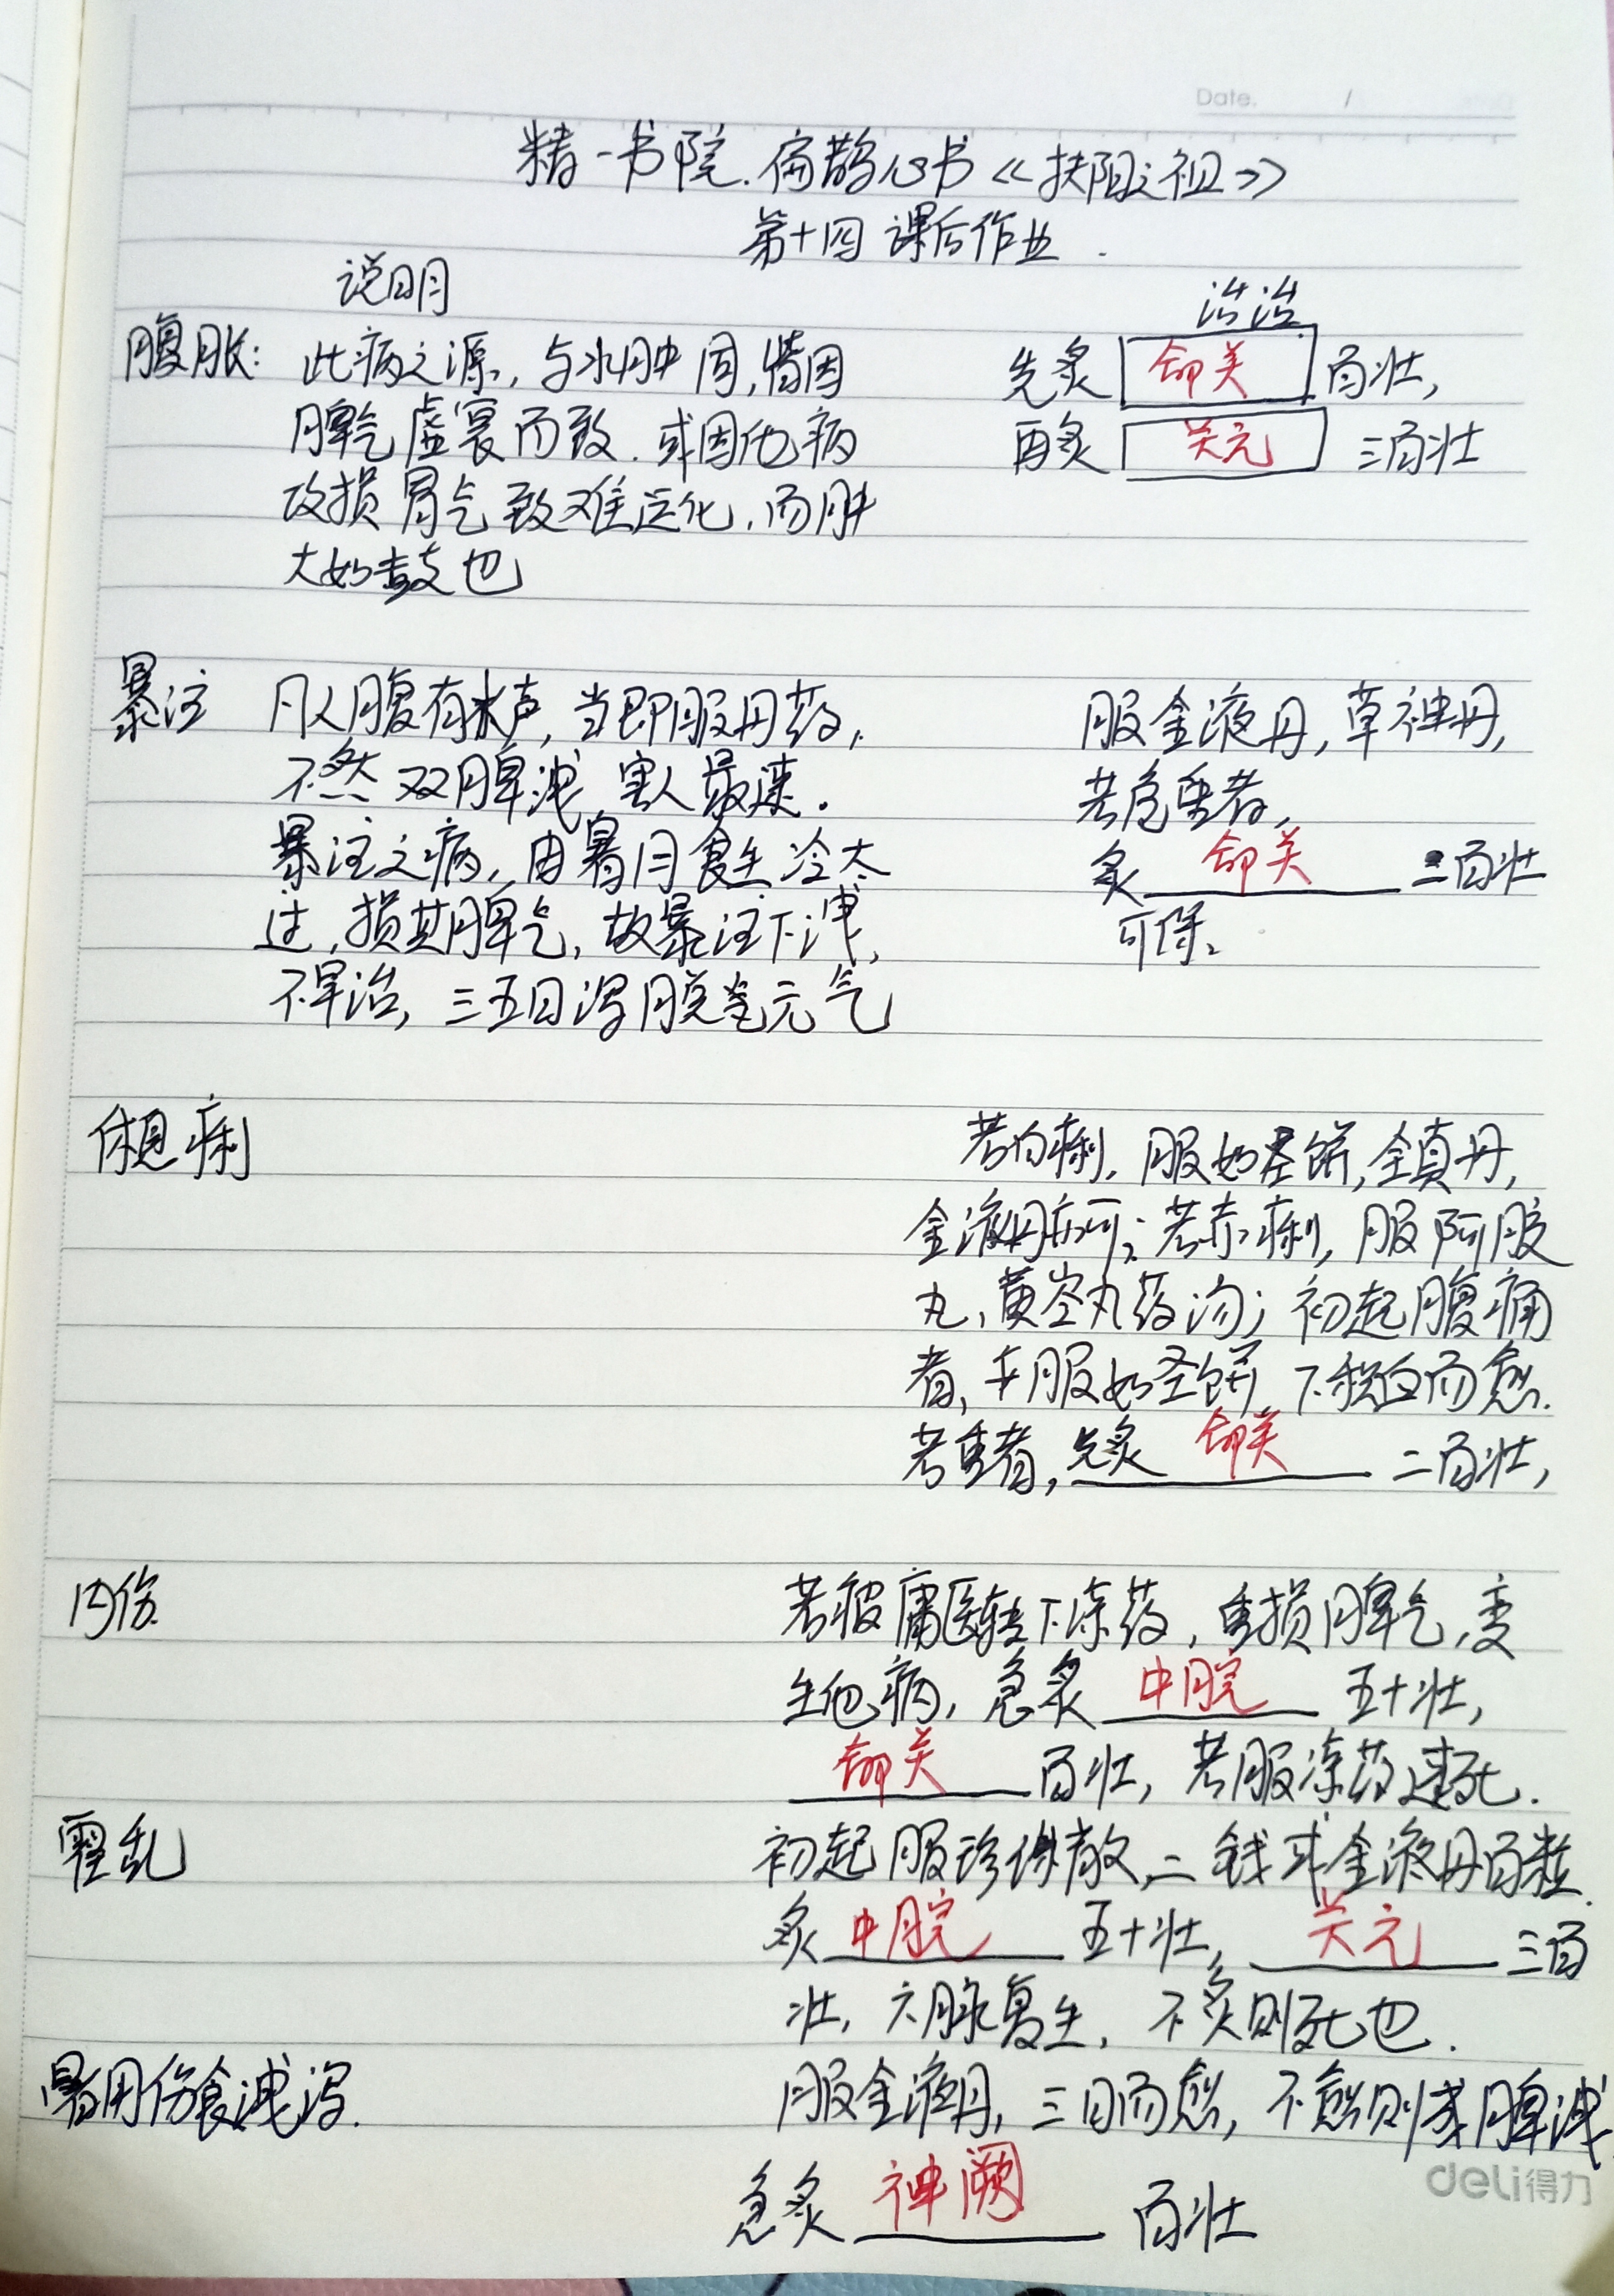 Date. /
精一书院.扁鹊心书《扶阳之祖》
第十四 课后作业.
说明 治法
腹胀: 此病之源,与水肿同,皆因 先灸 命关 百壮,
脾气虚衰而致.或因他病 再灸 关元 三百壮
攻损胃气致难运化,而肿
大如鼓也
暴注 凡人腹有水声,当即服丹药, 服金液丹,草神丹,
不然 变脾泄,害人最速. 若危重者,
暴注之病,由暑月食生冷太 灸 命关 二百壮
过,损其脾气,故暴注下泄, 可保。
不早治,三五日泻脱元气
休息痢 若白痢,服如圣饼,全真丹,
金液丹亦可;若赤痢,服阿胶
丸,黄芩丸药汤;初起腹痛
者,亦服如圣饼,下积血而愈.
若重者,先灸 命关 二百壮,
内伤 若被庸医转下凉药,重损脾气,变
生他病,急灸 中脘 五十壮,
命关 百壮,若服凉药速死.
霍乱 初起服珍珠散二钱或金液丹百粒
灸 中脘 五十壮, 关元 三百
壮,六脉复生,不灸则死也.
暑月伤食泄泻. 服金液丹,三日而愈,不愈则成脾泄
急灸 神阙 百壮
deli得力